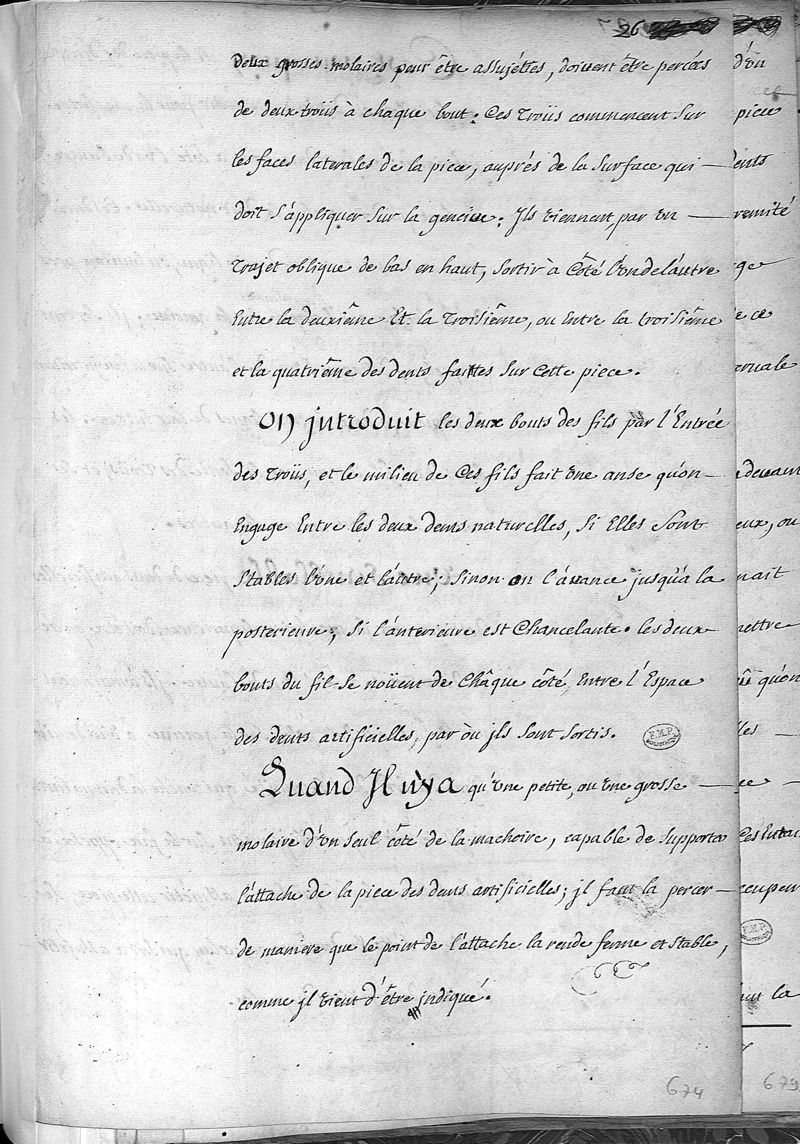 26
deux grosses molaires pour être assujéttes, doivent être percées
de deux troüs à chaque bout; Ces Troüs commencent sur
les faces laterales de la piece, auprés de la surface qui
doit s'appliquer sur la gencive; Ils viennent, par un
trajet oblique de bas en haut, sortir à Côté l'un de l'autre
Entre la deuxième Et la Troisième, ou Entre la troisième
et la quatrième des dents faittes sur Cette piece.
On jntroduit les deux bouts des fils par l'Entrée
des Troüs, et le milieu de Ces fils fait une anse qu'on
Engage Entre les deux dents naturelles, Si Elles Sont
Stables l'une et l'autre; Sinon on l'avance jusqu'à la
posterieure, Si l'anterieure est Chancelante. les deux
bouts du fil se noüent de Châque côté, Entre l'Espace
des dents artificielles, par où jls sont sortis.
Quand Il n'ya qu'une petite, ou une grosse
molaire d'un seul côté de la machoire, capable de supporter
l'attache de la piece des dents artificielles; jl faut la percer
de maniere que le point de l'attache la rende ferme et stable,
comme jl vient d'être jndiqué.
674
d'un
piece
dents
remité
ge
e ce
devant
eux, ou
nait
mettre
qu'on
lles
ce
Ces
occuper
la
679